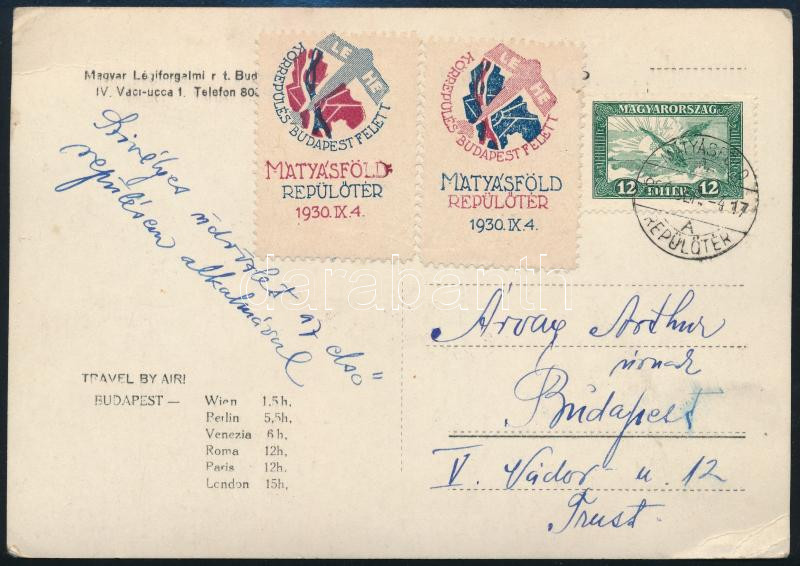 Magyar Légiforgalmi r t. Bud
IV. Váci-ucca 1. Telefon 80
LE HE
KÖRREPÜLÉS BUDAPEST FELETT
MÁTYÁSFÖLD
REPÜLŐTÉR
1930.IX.4.
LE HE
KÖRREPÜLÉS BUDAPEST FELETT
MÁTYÁSFÖLD
REPÜLŐTÉR
1930.IX.4.
MAGYARORSZÁG
12 FILLÉR 12
MÁTYÁSFÖLD
A
REPÜLŐTÉR
Szivélyes üdvözlet az első
repülésem alkalmával
darabanth
Árvay Arthur
úrnak
Budapest
V. Nádor-u. 12
Trust.
TRAVEL BY AIR!
BUDAPEST — Wien 1,5h,
Berlin 5,5h,
Venezia 6h,
Roma 12h,
Paris 12h.
London 15h,